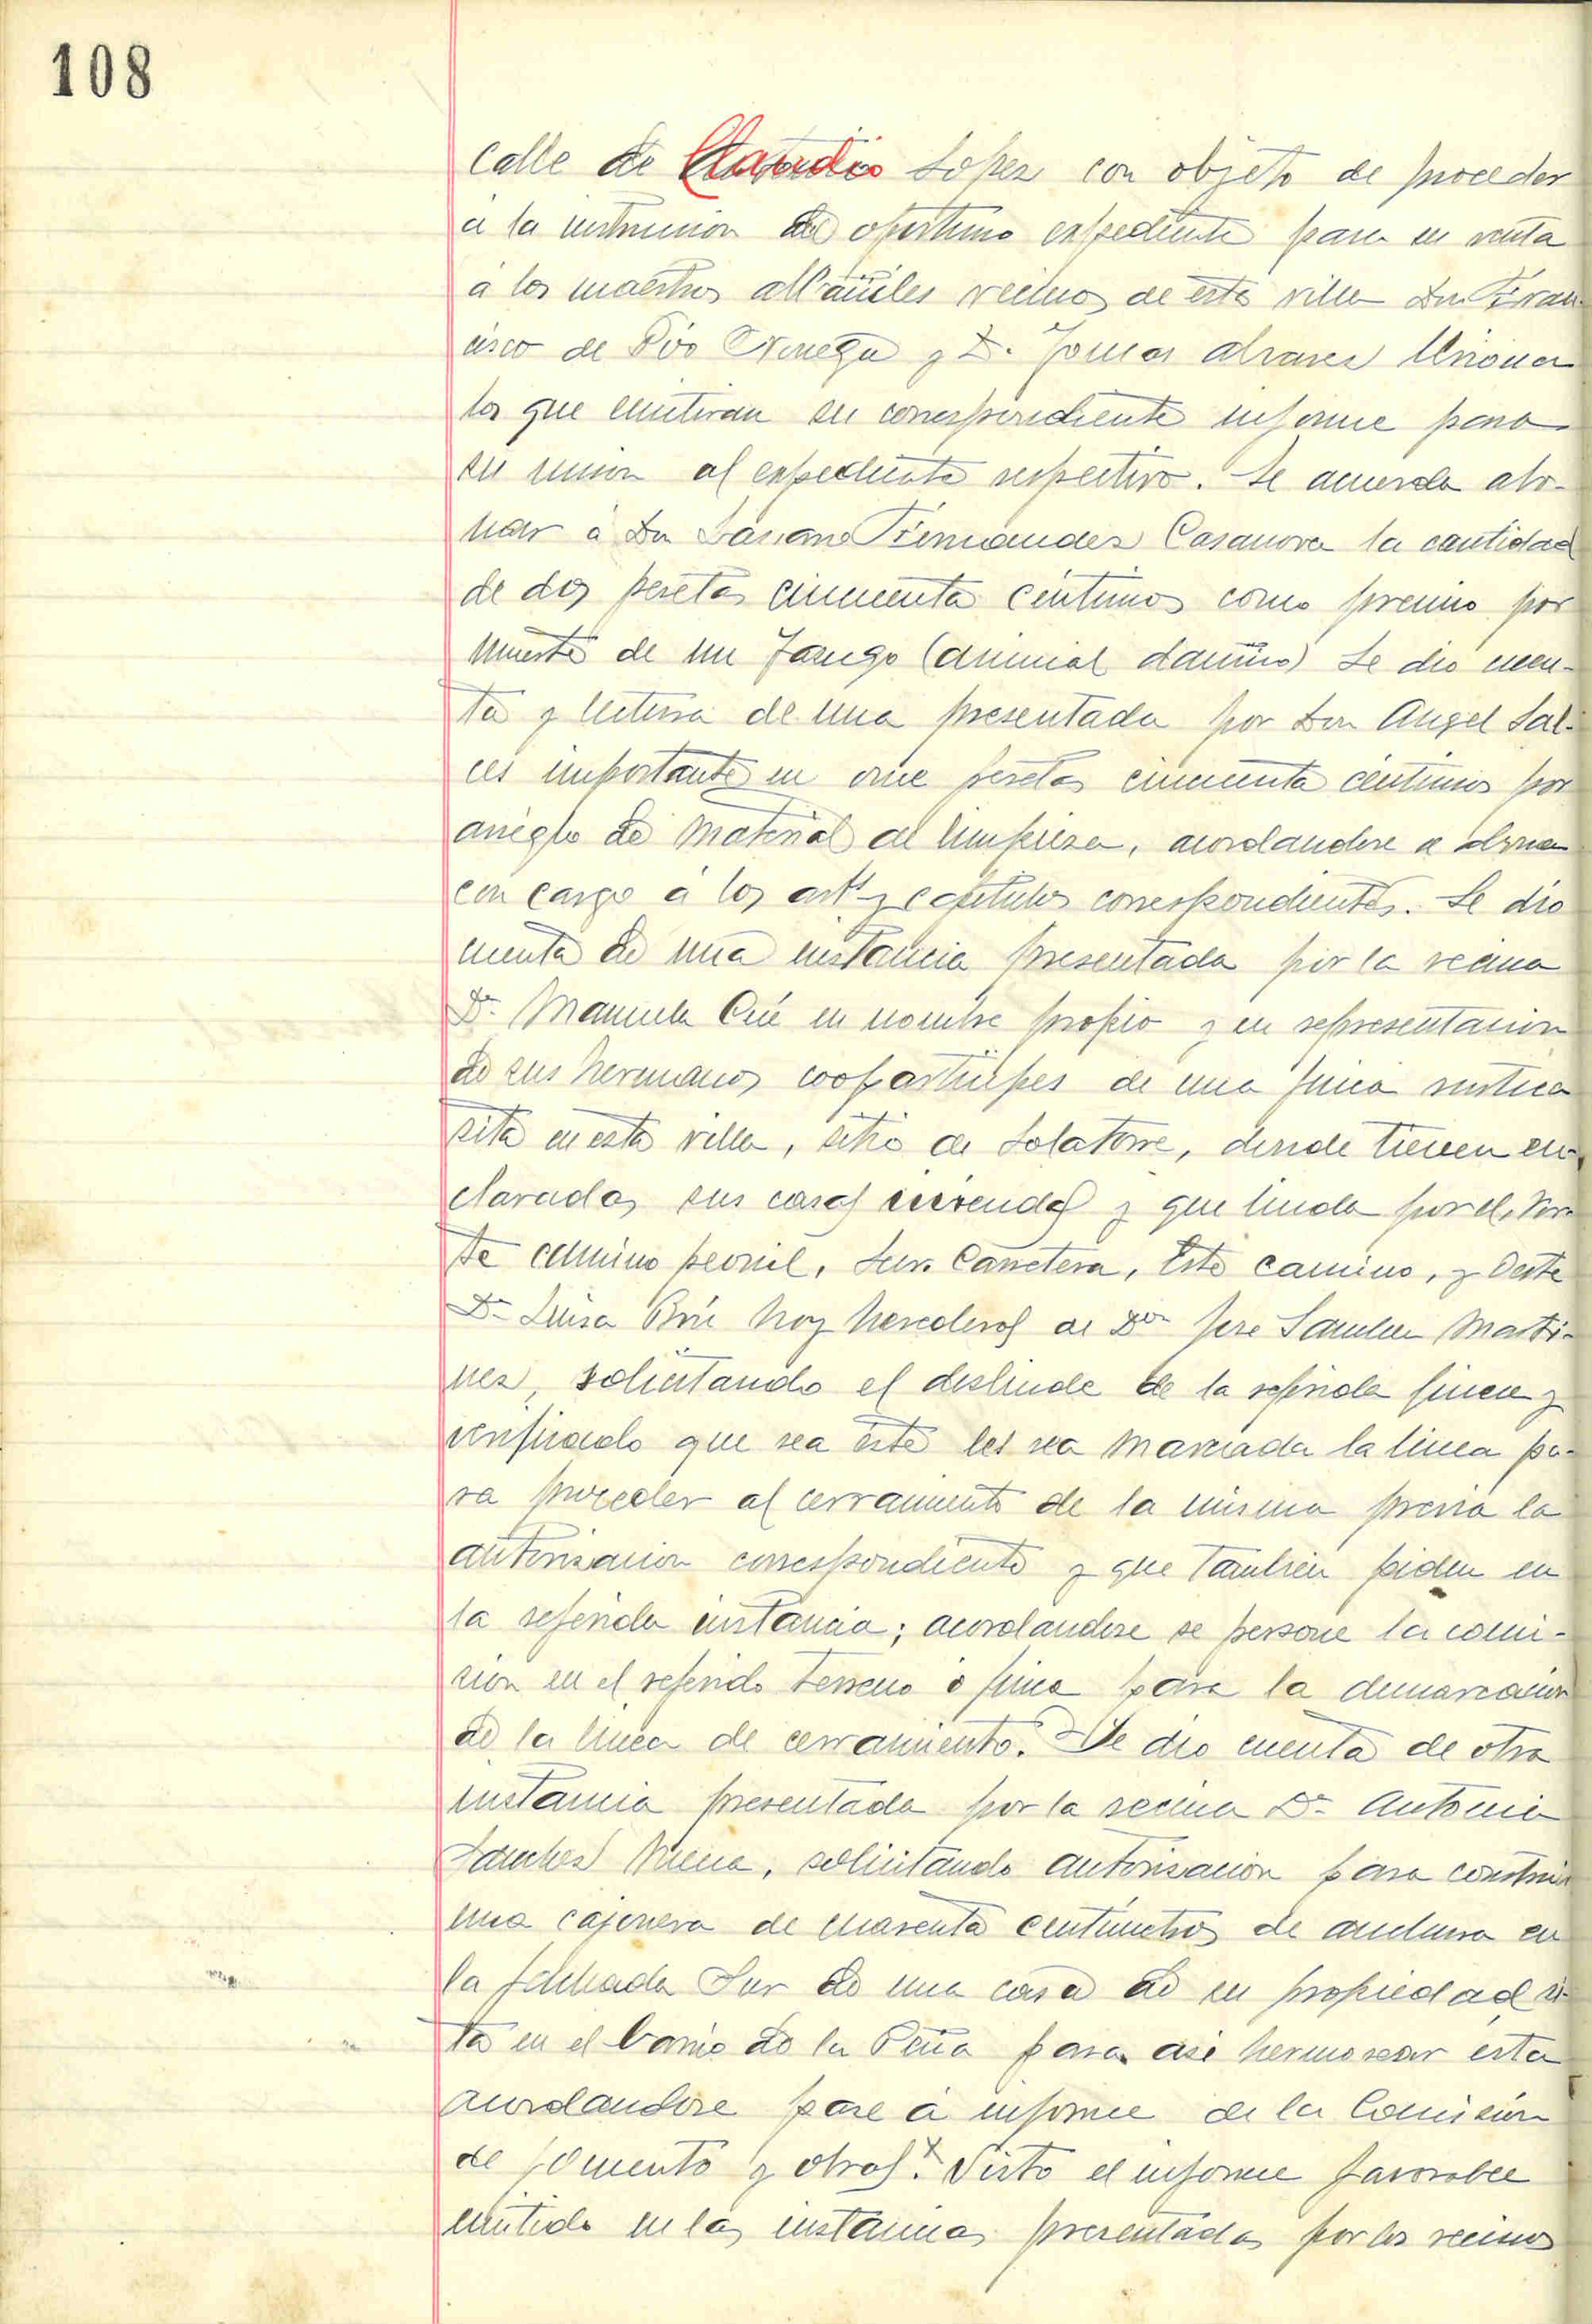 108
calle de Claudio Lopez con objeto de proceder
á la instrucion del oportuno expediente para su venta
á los maestros albañiles vecinos de esta villa Don Fran-
cisco de Pío Noriega y D. Tomas Alvarez
los que emitiran su correspondiente informe para
su union al expediente respectivo. Se acuerda abo-
nar á Don Fernández Casanova la cantidad
de dos pesetas cincuenta centimos como premio por
muerte de un (animal dañino) Se dio cuen-
ta y lectura de una presentada por Don Angel Sal-
ces importante en once pesetas cincuenta centimos por
arreglo de material de limpieza, acordandose abonar
con cargo á los artˢ y capitulos correspondientes. Se dio
cuenta de una instancia presentada por la vecina
Dª Manuela Cué en nombre propio y en representacion
de sus hermanos coopartícipes de una finca rustica
sita en esta villa, sitio de Solatorre, donde tienen en-
clavadas sus casas viviendas y que linda por el Nor-
te camino peonil, Sur. Carretera, Este camino, y Oeste
Dª Luisa hoy herederos de Don Jose Sanchez Marti-
nez, solicitando el deslinde de la referida finca y
verificado que sea éste les sea marcada la linea pa-
ra proceder al cerramiento de la misma previa la
autorizacion correspondiente y que tambien piden en
la referida instancia; acordandose se persone la comi-
sion en el referido terreno ó finca para la demarcacion
de la linea de cerramiento. Se dio cuenta de otra
instancia presentada por la vecina Dª Antonia
Sanchez Mena, solicitando autorizacion para construir
una cajonera de cuarenta centimetros de anchura en
la fachada Sur de una casa de su propiedad si-
ta en el barrio de la Peña para asi hermosear esta
acordandose pase á informe de la Comision
de fomento y obras. Visto el informe favorable
emitido en las instancias presentadas por los vecinos